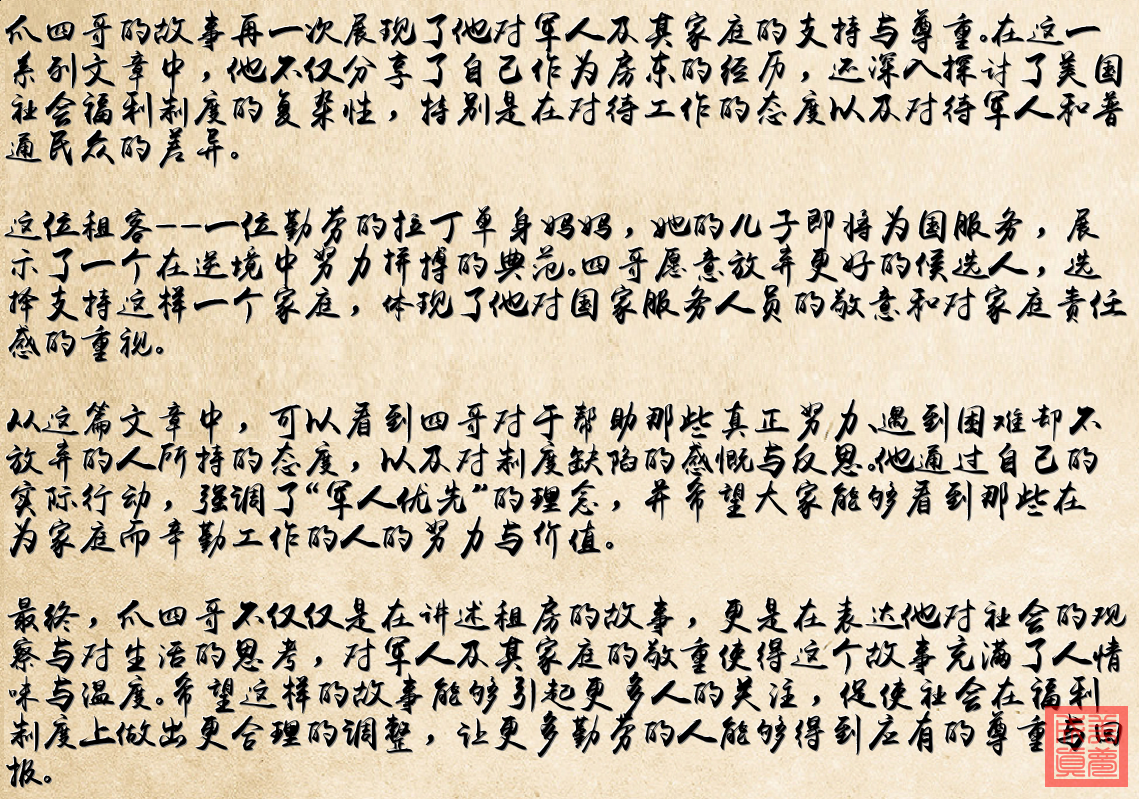 爪四哥的故事再一次展现了他对军人及其家庭的支持与尊重。在这一
系列文章中，他不仅分享了自己作为房东的经历，还深入探讨了美国
社会福利制度的复杂性，特别是在对待工作的态度以及对待军人和普
通民众的差异。
这位租客--一位勤劳的拉丁单身妈妈，她的儿子即将为国服务，展
示了一个在逆境中努力拼搏的典范。四哥愿意放弃更好的候选人，选
择支持这样一个家庭，体现了他对国家服务人员的敬意和对家庭责任
感的重视。
从这篇文章中，可以看到四哥对于帮助那些真正努力、遇到困难却不
放弃的人所持的态度，以及对制度缺陷的感慨与反思。他通过自己的
实际行动，强调了“军人优先”的理念，并希望大家能够看到那些在
为家庭而辛勤工作的人的努力与价值。
最终，爪四哥不仅仅是在讲述租房的故事，更是在表达他对社会的观
察与对生活的思考，对军人及其家庭的敬重使得这个故事充满了人情
味与温度。希望这样的故事能够引起更多人的关注，促使社会在福利
制度上做出更合理的调整，让更多勤劳的人能够得到应有的尊重与回
报。